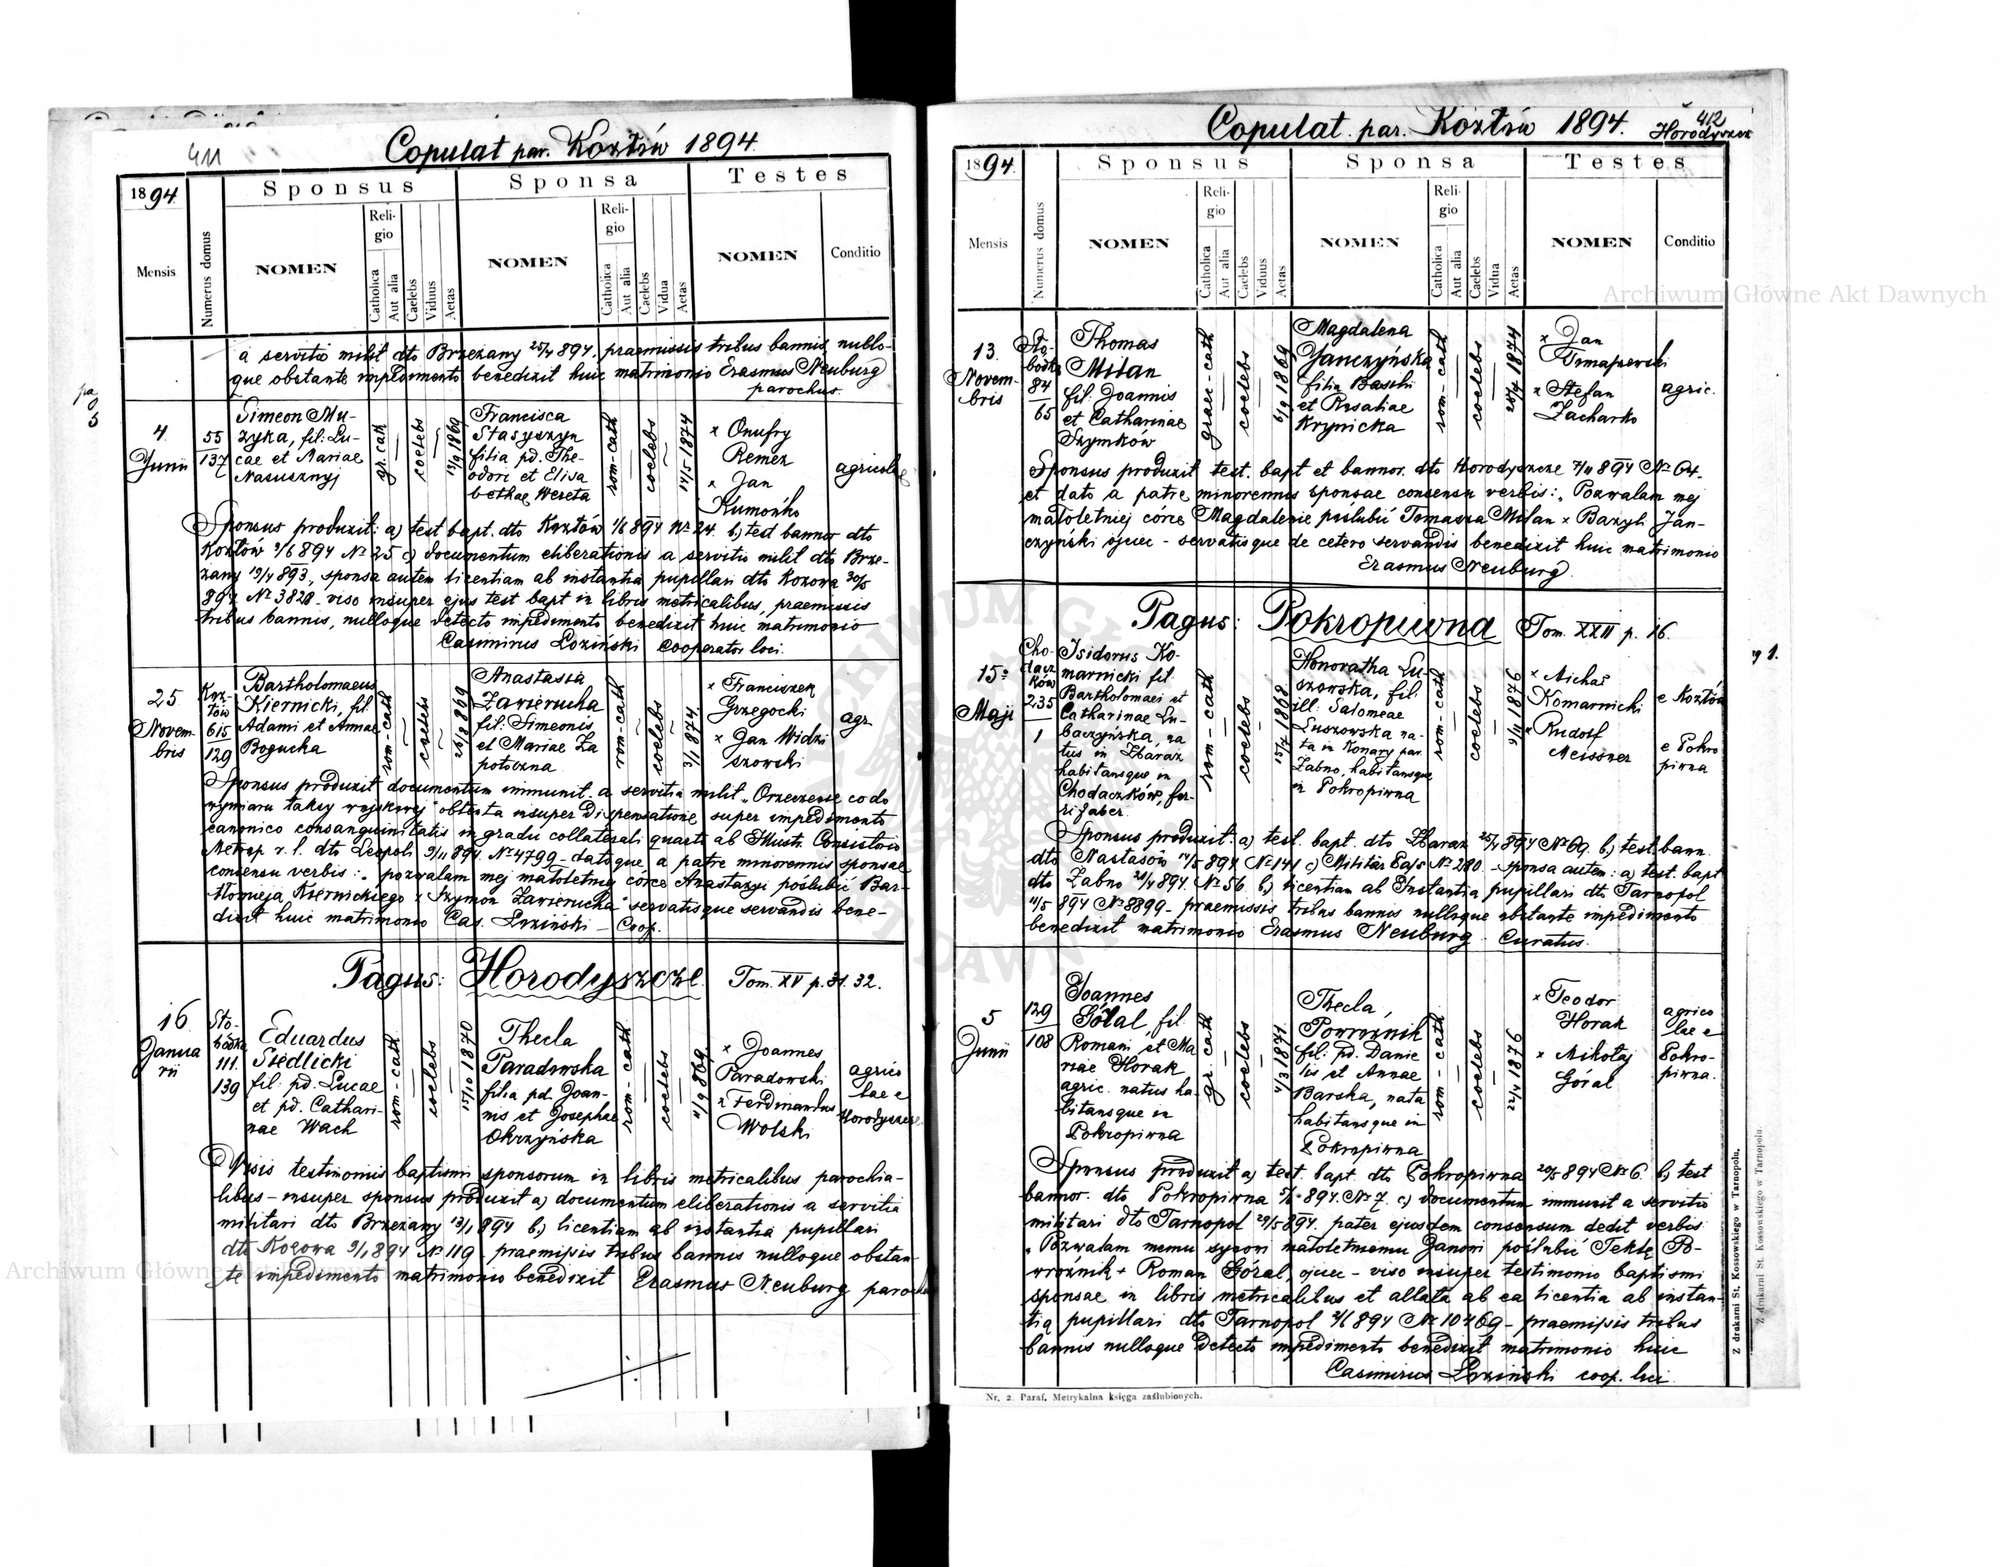 411
Copulat par. Kozłów 1894.
1894.
Sponsus
Sponsa
Testes
Mensis
Numerus domus
NOMEN
Religio
Catholica
Aut alia
Caelebs
Viduus
Aetas
NOMEN
Religio
Catholica
Aut alia
Caelebs
Vidua
Aetas
NOMEN
Conditio
a servitio milit dto Brzeżany 25/4 894. praemissis tribus bannis, nullo-
que obstante impedimento benedixit huic matrimonio Erasmus Neuburg
parochus.
pag
3
4.
Junii
55
137
Simeon Mu-
zyka, fil: Lu-
cae et Mariae
Nasusznyj
gr. cath
coelebs
13/9 1869
Francisca
Stasyszyn
filia pd. The-
odori et Elisa
bethae Wereta
rom-cath
coelebs
14/5 1874
x Onufry
Remez
x Jan
Kumońko
agricolae
Sponsus produxit: a) test bapt. dto Kozłów 1/6 894 Nr 24. b) test bannor dto
Kozłów 3/6 894 Nr 25 c) documentum eliberationis a servitio milit dto Brze-
żany 19/4 893, sponsa autem licentiam ab instantia pupillari dto Kozowa 30/5
894 Nr 3820 - viso insuper ejus test bapt in libris metricalibus, praemissis
tribus bannis, nulloque detecto impedimento benedixit huic matrimonio
Casimirus Łoziński cooperator loci.
25
Novem-
bris
Koz-
łów
615
129
Bartholomaeus
Kiernicki, fil
Adami et Annae
Bogucka
rom-cath
coelebs
26/8 869
Anastasia
Zawierucha
fil. Simeonis
et Mariae Za
potoczna
rom-cath
coelebs
3/1 874
x Franciszek
Grzegocki
x Jan Widzi
szowski
agr
Sponsus produxit documentum immunit. a servitio milit „Orzeczenie co do
wymiaru taksy wojskowej" obtenta insuper dispensatione super impedimento
canonico consanguinitatis in gradu collaterali quarto ab Illustr. Consistorio
Metrop r. l. dto Leopoli 9/11 894. Nr 4799 - datoque a patre minorennis sponsae
consensu verbis: „pozwalam mej małoletniej córce Anastazyi poślubić Bar-
tłomieja Kiernickiego x Szymon Zawierucha" servatisque servandis bene-
dixit huic matrimonio Cas. Łoziński - Coop.
Pagus: Horodyszcze. Tom. XV p. 31. 32.
16
Janua
rii
Sło-
bódka
111.
139
Eduardus
Siedlicki
fil. pd. Lucae
et pd. Cathari-
nae Wach
rom-cath
coelebs
15/10 1870
Thecla
Paradowska
filia pd Joan-
nis et Josephae
Okrzyńska
rom-cath
coelebs
4/9 869.
x Joannes
Paradowski
x Ferdinandus
Wolski
agrico
lae e
Horodyszcze
Visis testimoniis baptismi sponsorum in libris metricalibus parochia-
libus - insuper sponsus produxit a) documentum eliberationis a servitio
militari dto Brzeżany 13/1 894 b) licentiam ab instantia pupillari
dto Kozowa 9/1 894 Nr 119 - praemissis tribus bannis nulloque obstan-
te impedimento matrimonio benedixit Erasmus Neuburg parochus
Copulat. par. Kozłów 1894.
412
Horodyszcz
1894.
Sponsus
Sponsa
Testes
Mensis
Numerus domus
NOMEN
Religio
Catholica
Aut alia
Caelebs
Viduus
Aetas
NOMEN
Religio
Catholica
Aut alia
Caelebs
Vidua
Aetas
NOMEN
Conditio
13.
Novem-
bris
Sło-
bódka
84
65
Thomas
Milan
fil. Joannis
et Catharinae
Szymków
graec-cath
coelebs
6/9 1869
Magdalena
Janczyńska
filia Basilii
et Rosaliae
Krynicka
rom-cath
coelebs
25/4 1874
x Jan
x Stefan
Zacharko
agric.
Sponsus produxit test. bapt et bannor. dto Horodyszcze 7/11 894 Nr 64.
et dato a patre minorennis sponsae consensu verbis: „Pozwalam mej
małoletniej córce Magdalenie poślubić Tomasza Milan x Bazyli Jan-
czyński ojciec - servatisque de cetero servandis benedixit huic matrimonio
Erasmus Neuburg
Pagus: Pokropiwna Tom. XXII p. 16.
15.
Maji
Cho-
dacz
ków
235
1
Isidorus Ko-
marnicki fil.
Bartholomaei et
Catharinae Lu-
baczyńska, na-
tus in Zbaraż
habitansque in
Chodaczków, fer-
ri faber.
rom-cath
coelebs
15/7 1868
Honoratha Lu-
szowska, fil.
ill. Salomeae
Luszowska na-
ta in Konary par.
Żabno, habitansque
in Pokropiwna
rom-cath
coelebs
9/11 1876
x Michał
Komarnicki
x Rudolf
Meissner
e Kozłów
e Pokro
piwna
Sponsus produxit: a) test. bapt. dto Zbaraż 25/4 894 Nr 69. b) test. bann.
dto Nastasów 14/5 894 Nr 141 c) Militär Pass Nr 280 - sponsa autem: a) test. bapt
dto Żabno 28/4 894. Nr 56. b) licentiam ab Instantia pupillari dto Tarnopol
11/5 894 Nr 8899 - praemissis tribus bannis nulloque obstante impedimento
benedixit matrimonio Erasmus Neuburg - Curatus.
5
Junii
129
108
Joannes
Góral, fil.
Romani et Ma
riae Horak
agric. natus ha-
bitansque in
Pokropiwna
gr. cath
coelebs
4/3 1871
Thecla,
Powroznik
fil: pd. Danie
lis et Annae
Barska, nata
habitansque in
Pokropiwna
rom-cath
coelebs
22/4 1876
x Teodor
Horak
x Mikołaj
Góral
agrico
lae e
Pokro-
piwna.
Sponsus produxit a) test. bapt. dto Pokropiwna 20/5 894 Nr 6. b) test
bannor. dto Pokropiwna 5/6 894. Nr 7. c) documentum immunit a servitio
militari dto Tarnopol 29/5 894. pater ejusdem consensum dedit verbis
„Pozwalam memu synowi małoletniemu Janowi poślubić Teklę Po-
wroźnik + Roman Góral, ojciec - viso insuper testimonio baptismi
sponsae in libris metricalibus et allata ab ea licentia ab instan-
tia pupillari dto Tarnopol 2/6 894 Nr 10469 - praemissis tribus
bannis nulloque detecto impedimento benedixit matrimonio huic
Casimirus Łoziński coop. loci
Nr. 2. Paraf. Metrykalna księga zaślubionych.
Z drukarni St. Kossowskiego w Tarnopolu.
Z drukarni St. Kossowskiego w Tarnopolu.
Archiwum Główne Akt Dawnych
Archiwum Główne Akt Dawnych